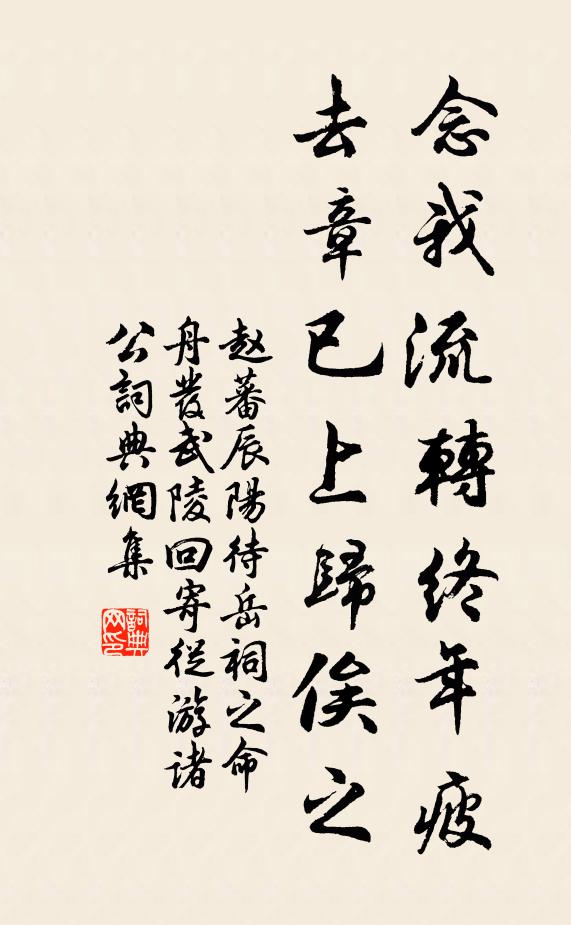 念我流轉終年疲
去章已上歸俟之
赵蕃辰陽待岳祠之命
舟發武陵回寄從游諸
公詞典網集
詞典网印